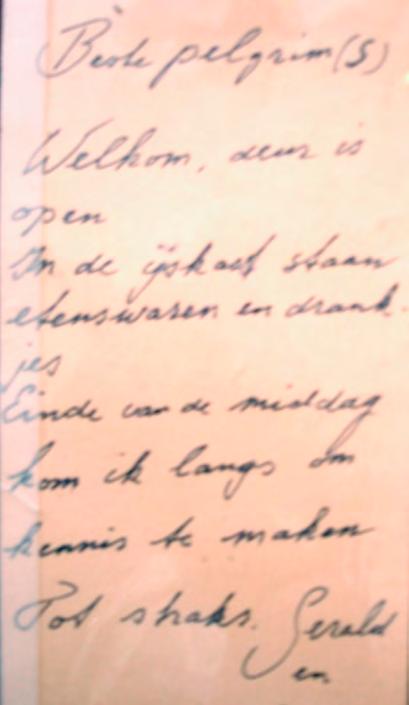 Beste pelgrim(s)
Welkom, deur is
open
In de ijskast staan
etenswaren en drank-
jes
Einde van de middag
kom ik langs om
kennis te maken
Tot straks. Gerald
en